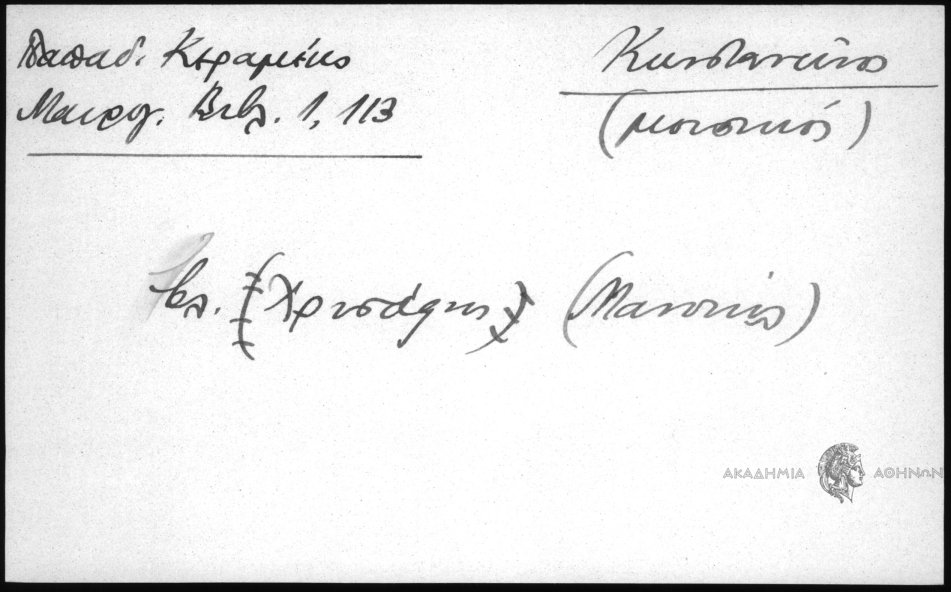 Παπαδ. Κεραμεύς
Μαυρογ. Βιβλ. 1, 113
Κωνσταντίνος
(μουσικός)
βλ. (Χρυσάφης) (Μανουήλ)
ΑΚΑΔΗΜΙΑ ΑΘΗΝΩΝ